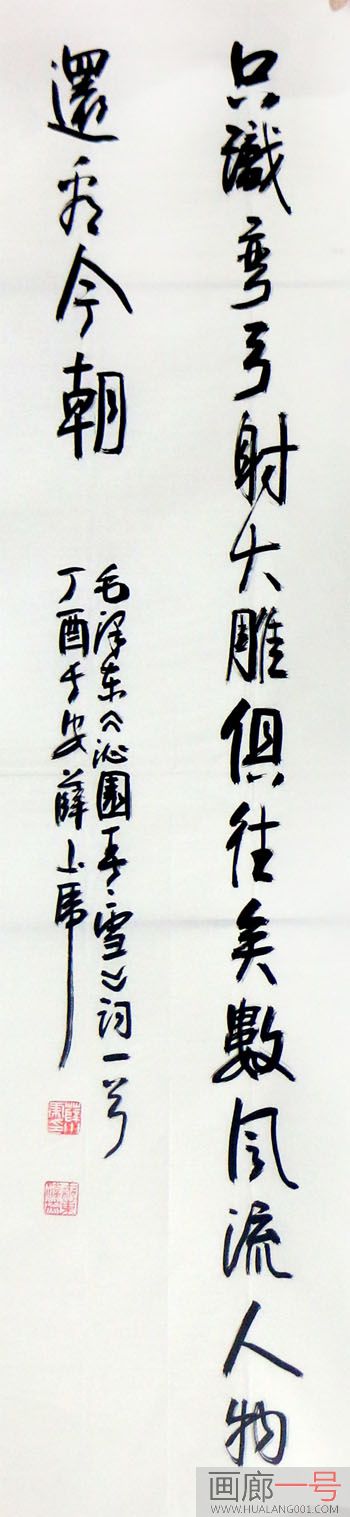 只識弯弓射大雕俱往矣數风流人物
還看今朝
毛泽东《沁園春·雪》词一首
丁酉安薛
画廊一号
WWW.HUALANG001.COM